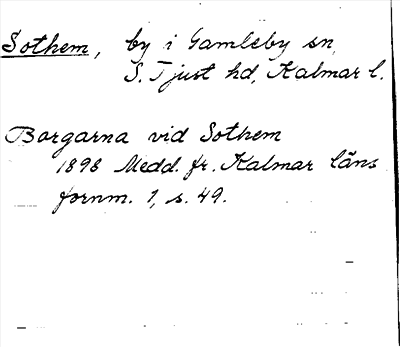 Sothem, by i Gamleby sn,
S. Tjust hd, Kalmar l.
Borgarna vid Sothem
1898 Medd. fr. Kalmar läns
fornm. 1, s. 49.